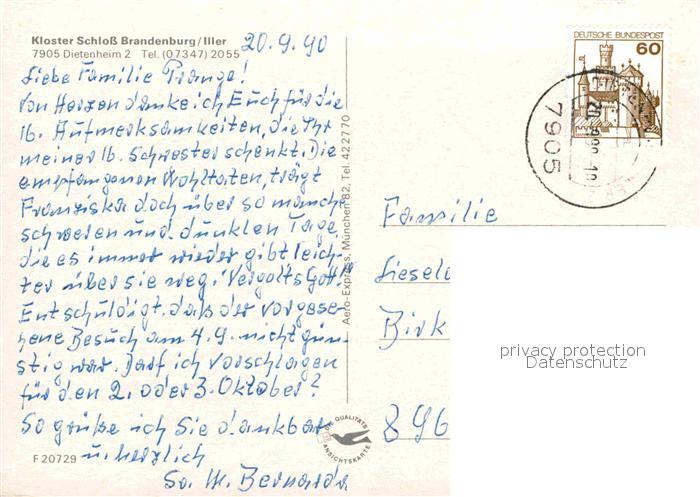 Kloster Schloß Brandenburg/Iller
7905 Dietenheim 2 Tel. (07347) 2055
20.9.90
Liebe Familie Prange!
Von Herzen danke ich Euch für die
lb. Aufmerksamkeiten, die Ihr
meiner lb. Schwester schenkt. Die
empfangenen Wohltaten, trägt
Franziska doch über so manch
schweren und dunklen Tage
die es immer wieder gibt leich-
ter über sie weg! Vergelts Gott!
Entschuldigt, daß der vorgese-
hene Besuch am 4.9. nicht gün-
stig war. Darf ich vorschlagen
für den 2. oder 3. Oktober?
So grüße ich Sie dankbar
u. herzlich
Sr. M. Bernarda
F 20729
Aero-Express, München 82, Tel. 42 27 70
DIE QUALITÄTS
ANSICHTSKARTE
DEUTSCHE BUNDESPOST
60
7905
Familie
Liesel
Birk
896
privacy protection
Datenschutz